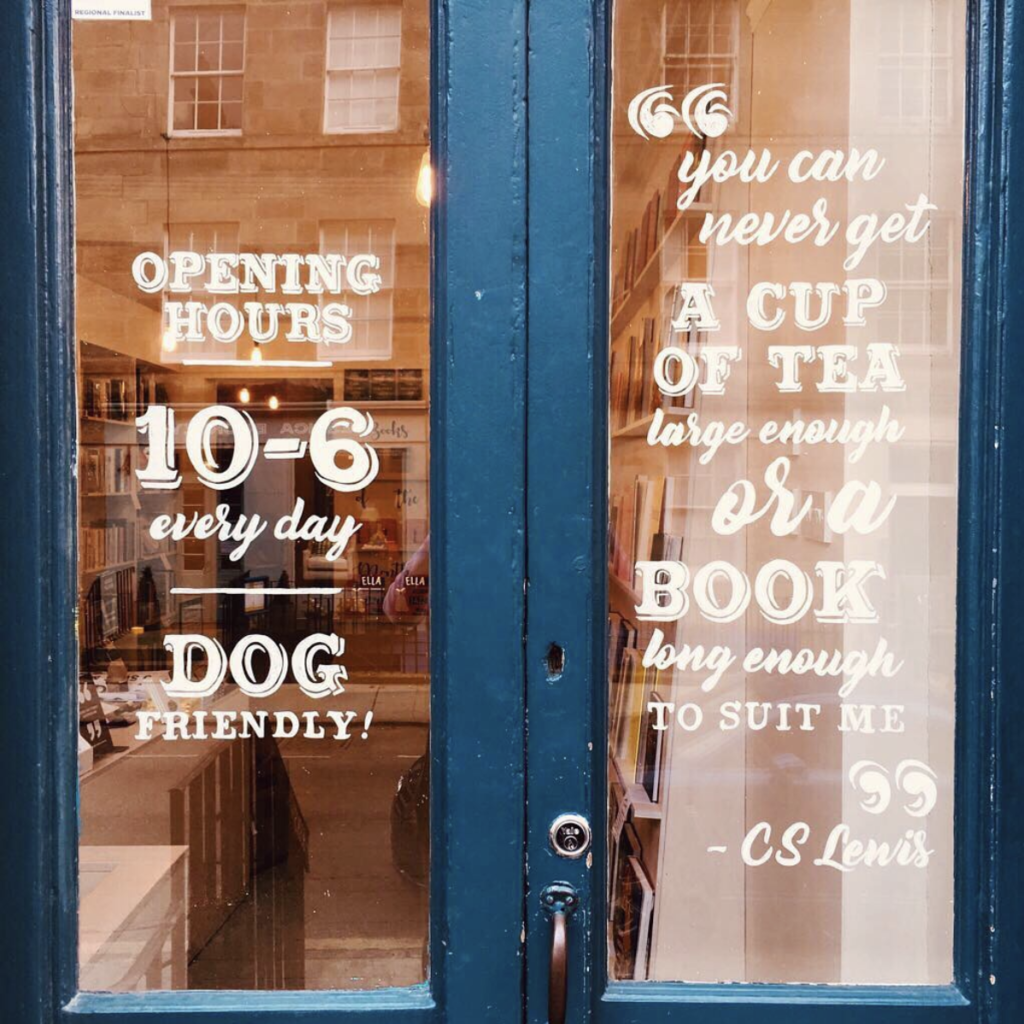 REGIONAL FINALIST
OPENING
HOURS
10-6
every day
DOG
FRIENDLY!
Books
of the
Month
ELLA ELLA
“
you can
never get
A CUP
OF TEA
large enough
or a
BOOK
long enough
TO SUIT ME
”
- CS Lewis
Yale